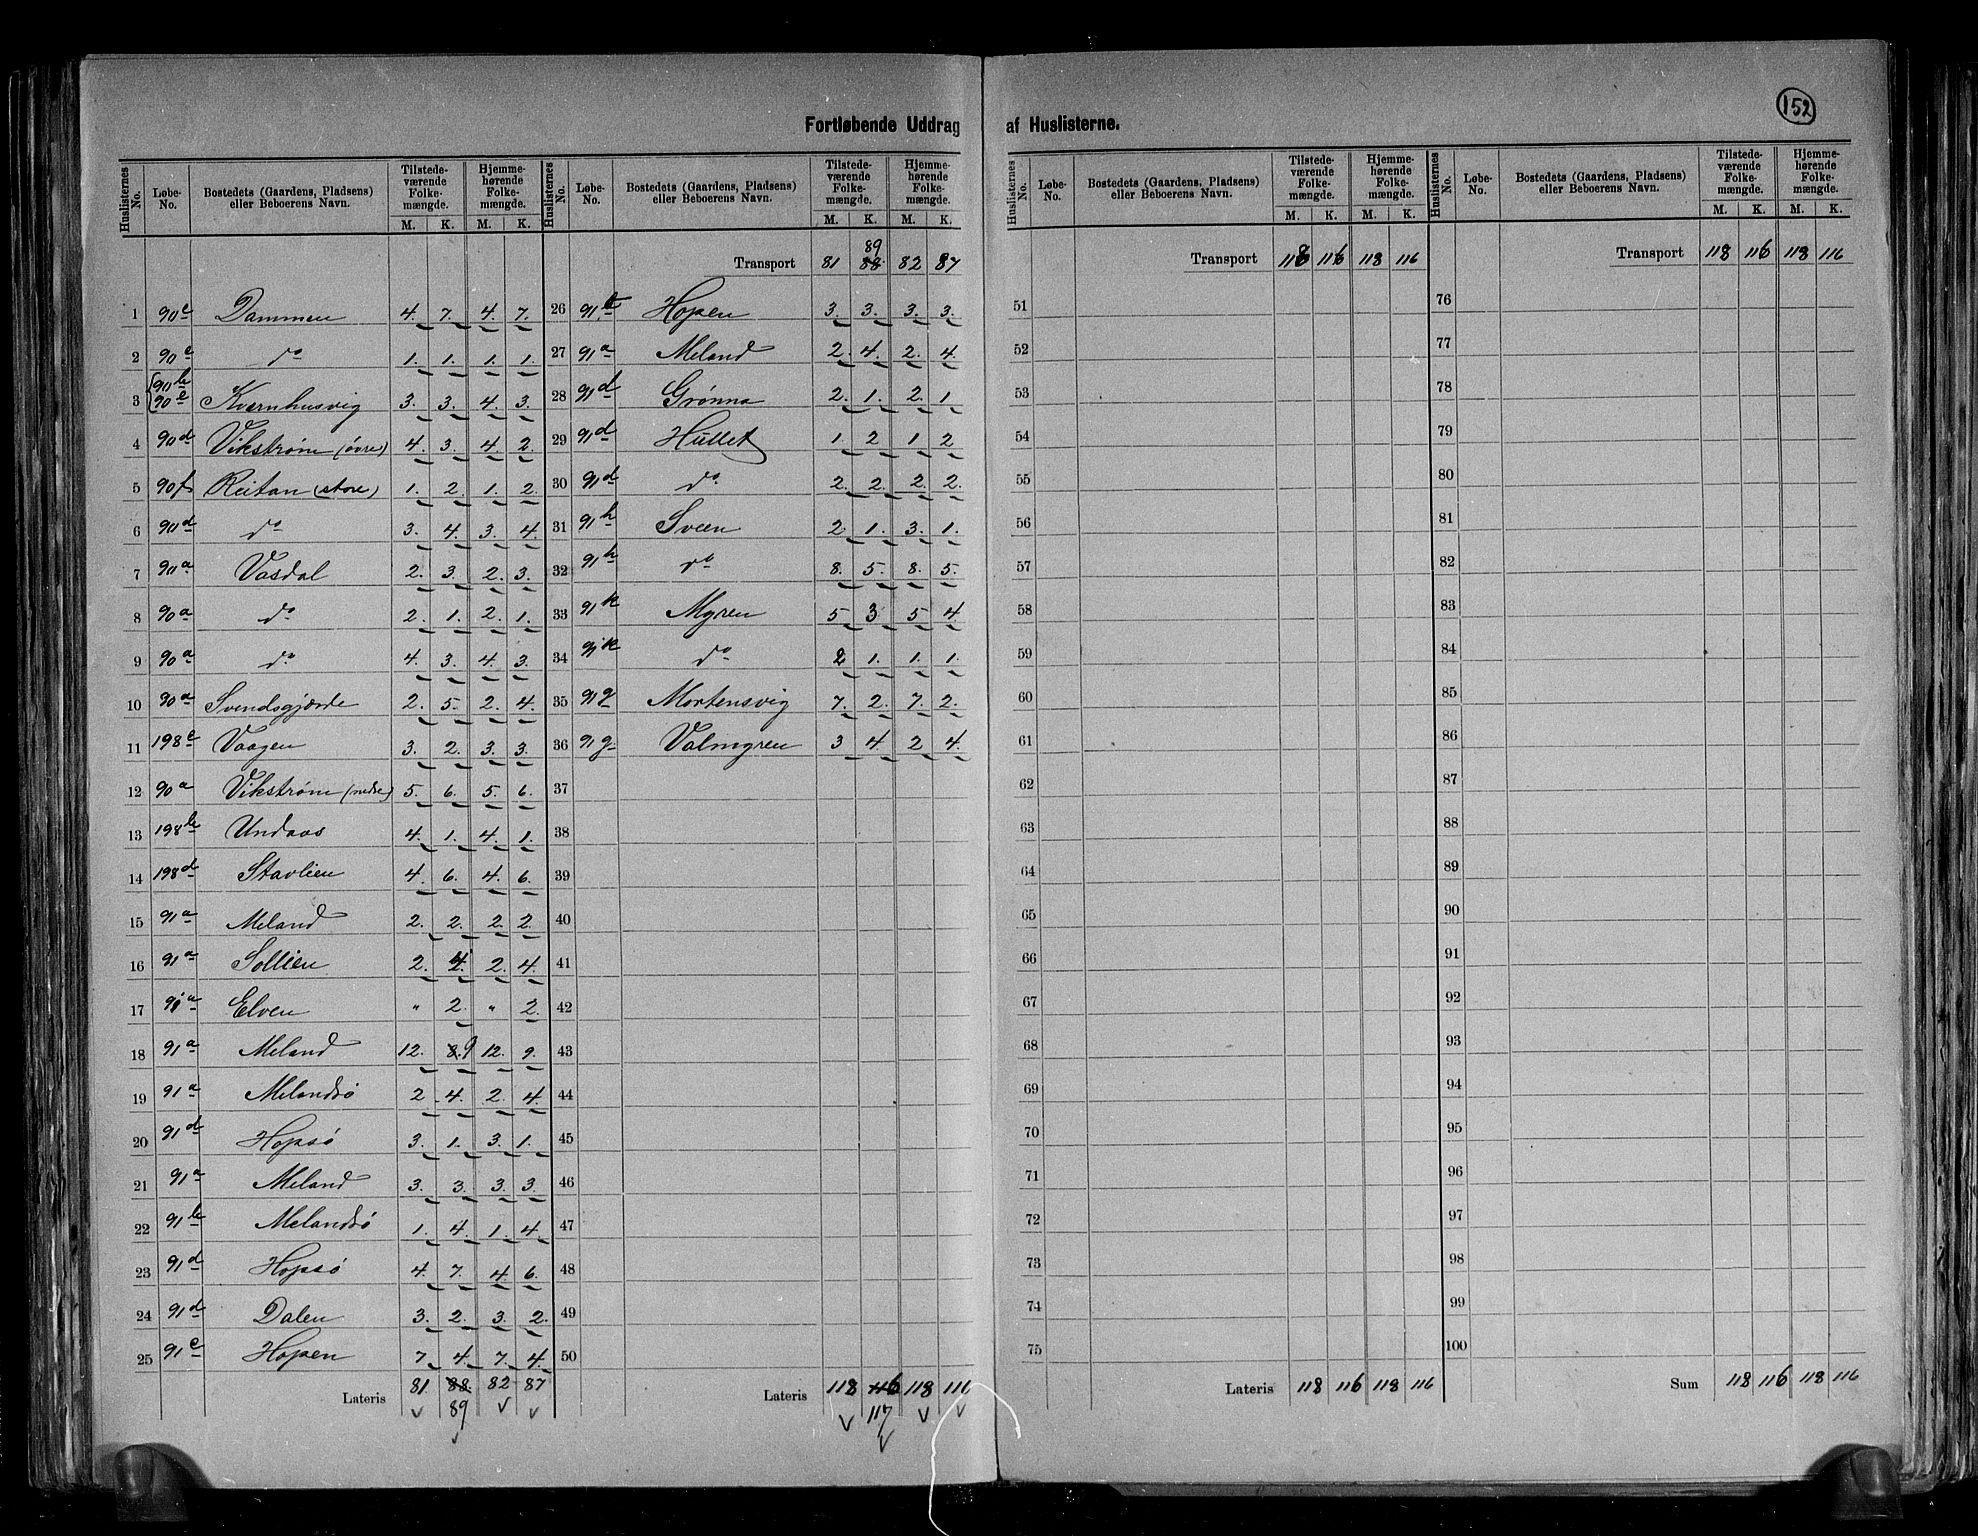 152
Fortløbende Uddrag af Huslisterne.
Huslisternes No. | Løbe-No. | Bostedets (Gaardens, Pladsens) eller Beboerens Navn. | Tilstedeværende Folkemængde. M. K. | Hjemmehørende Folkemængde. M. K.
1 90c Dammen 4. 7. 4. 7.
2 90e do 1. 1. 1. 1.
3 {90b 90e Kvernhusvig 3. 3. 4. 3.
4 90d Vikstrøm (øvre) 4. 3. 4. 2.
5 90f Reitan (store) 1. 2. 1. 2.
6 90d do 3. 4. 3. 4.
7 90a Vasdal 2. 3. 2. 3.
8 90a do 2. 1. 2. 1.
9 90a do 4. 3. 4. 3.
10 90a Svendsgjærde 2. 5. 2. 4.
11 198c Vaagen 3. 2. 3. 3.
12 90a Vikstrøm (nedre) 5. 6. 5. 6.
13 198b Undaas 4. 1. 4. 1.
14 198d Stavlien 4. 6. 4. 6.
15 91a Meland 2. 2. 2. 2.
16 91a Sollien 2. 4. 2. 4.
17 91a Elven " 2. " 2.
18 91a Meland 12. 8. 9 12. 9.
19 91a Melandsø 2 4. 2. 4.
20 91d Hopsø 3. 1. 3. 1.
21 91a Meland 3. 3. 3. 3.
22 91b Melandsø 1. 4. 1. 4.
23 91d Hopsø 4. 7. 4. 6.
24 91d Dalen 3. 2. 3. 2.
25 91e Hopen 7. 4. 7. 4.
Lateris 81 88. 82 87
89
Huslisternes No. | Løbe-No. | Bostedets (Gaardens, Pladsens) eller Beboerens Navn. | Tilstedeværende Folkemængde. M. K. | Hjemmehørende Folkemængde. M. K.
89
Transport 81 88 82 87
26 91 Hopen 3. 3. 3. 3.
27 91a Meland 2. 4. 2. 4
28 91d Grønna 2. 1. 2. 1.
29 91d Hullet 1. 2 1 2
30 91d do 2. 2. 2. 2.
31 91h Sveen 2 1. 3. 1.
32 91h do 8. 5. 8. 5.
33 91k Myren 5 3 5 4
34 91k do 2 1. 1. 1.
35 91g Mortensvig 7. 2. 7. 2.
36 91g Valmyren 3 4 2 4.
37
38
39
40
41
42
43
44
45
46
47
48
49
50
Lateris 118 116 118 116
117
Huslisternes No. | Løbe-No. | Bostedets (Gaardens, Pladsens) eller Beboerens Navn. | Tilstedeværende Folkemængde. M. K. | Hjemmehørende Folkemængde. M. K.
Transport 118 116 118 116
51
52
53
54
55
56
57
58
59
60
61
62
63
64
65
66
67
68
69
70
71
72
73
74
75
Lateris 118 116 118 116
Huslisternes No. | Løbe-No. | Bostedets (Gaardens, Pladsens) eller Beboerens Navn. | Tilstedeværende Folkemængde. M. K. | Hjemmehørende Folkemængde. M. K.
Transport 118 116 118 116
76
77
78
79
80
81
82
83
84
85
86
87
88
89
90
91
92
93
94
95
96
97
98
99
100
Sum 118 116 118 116